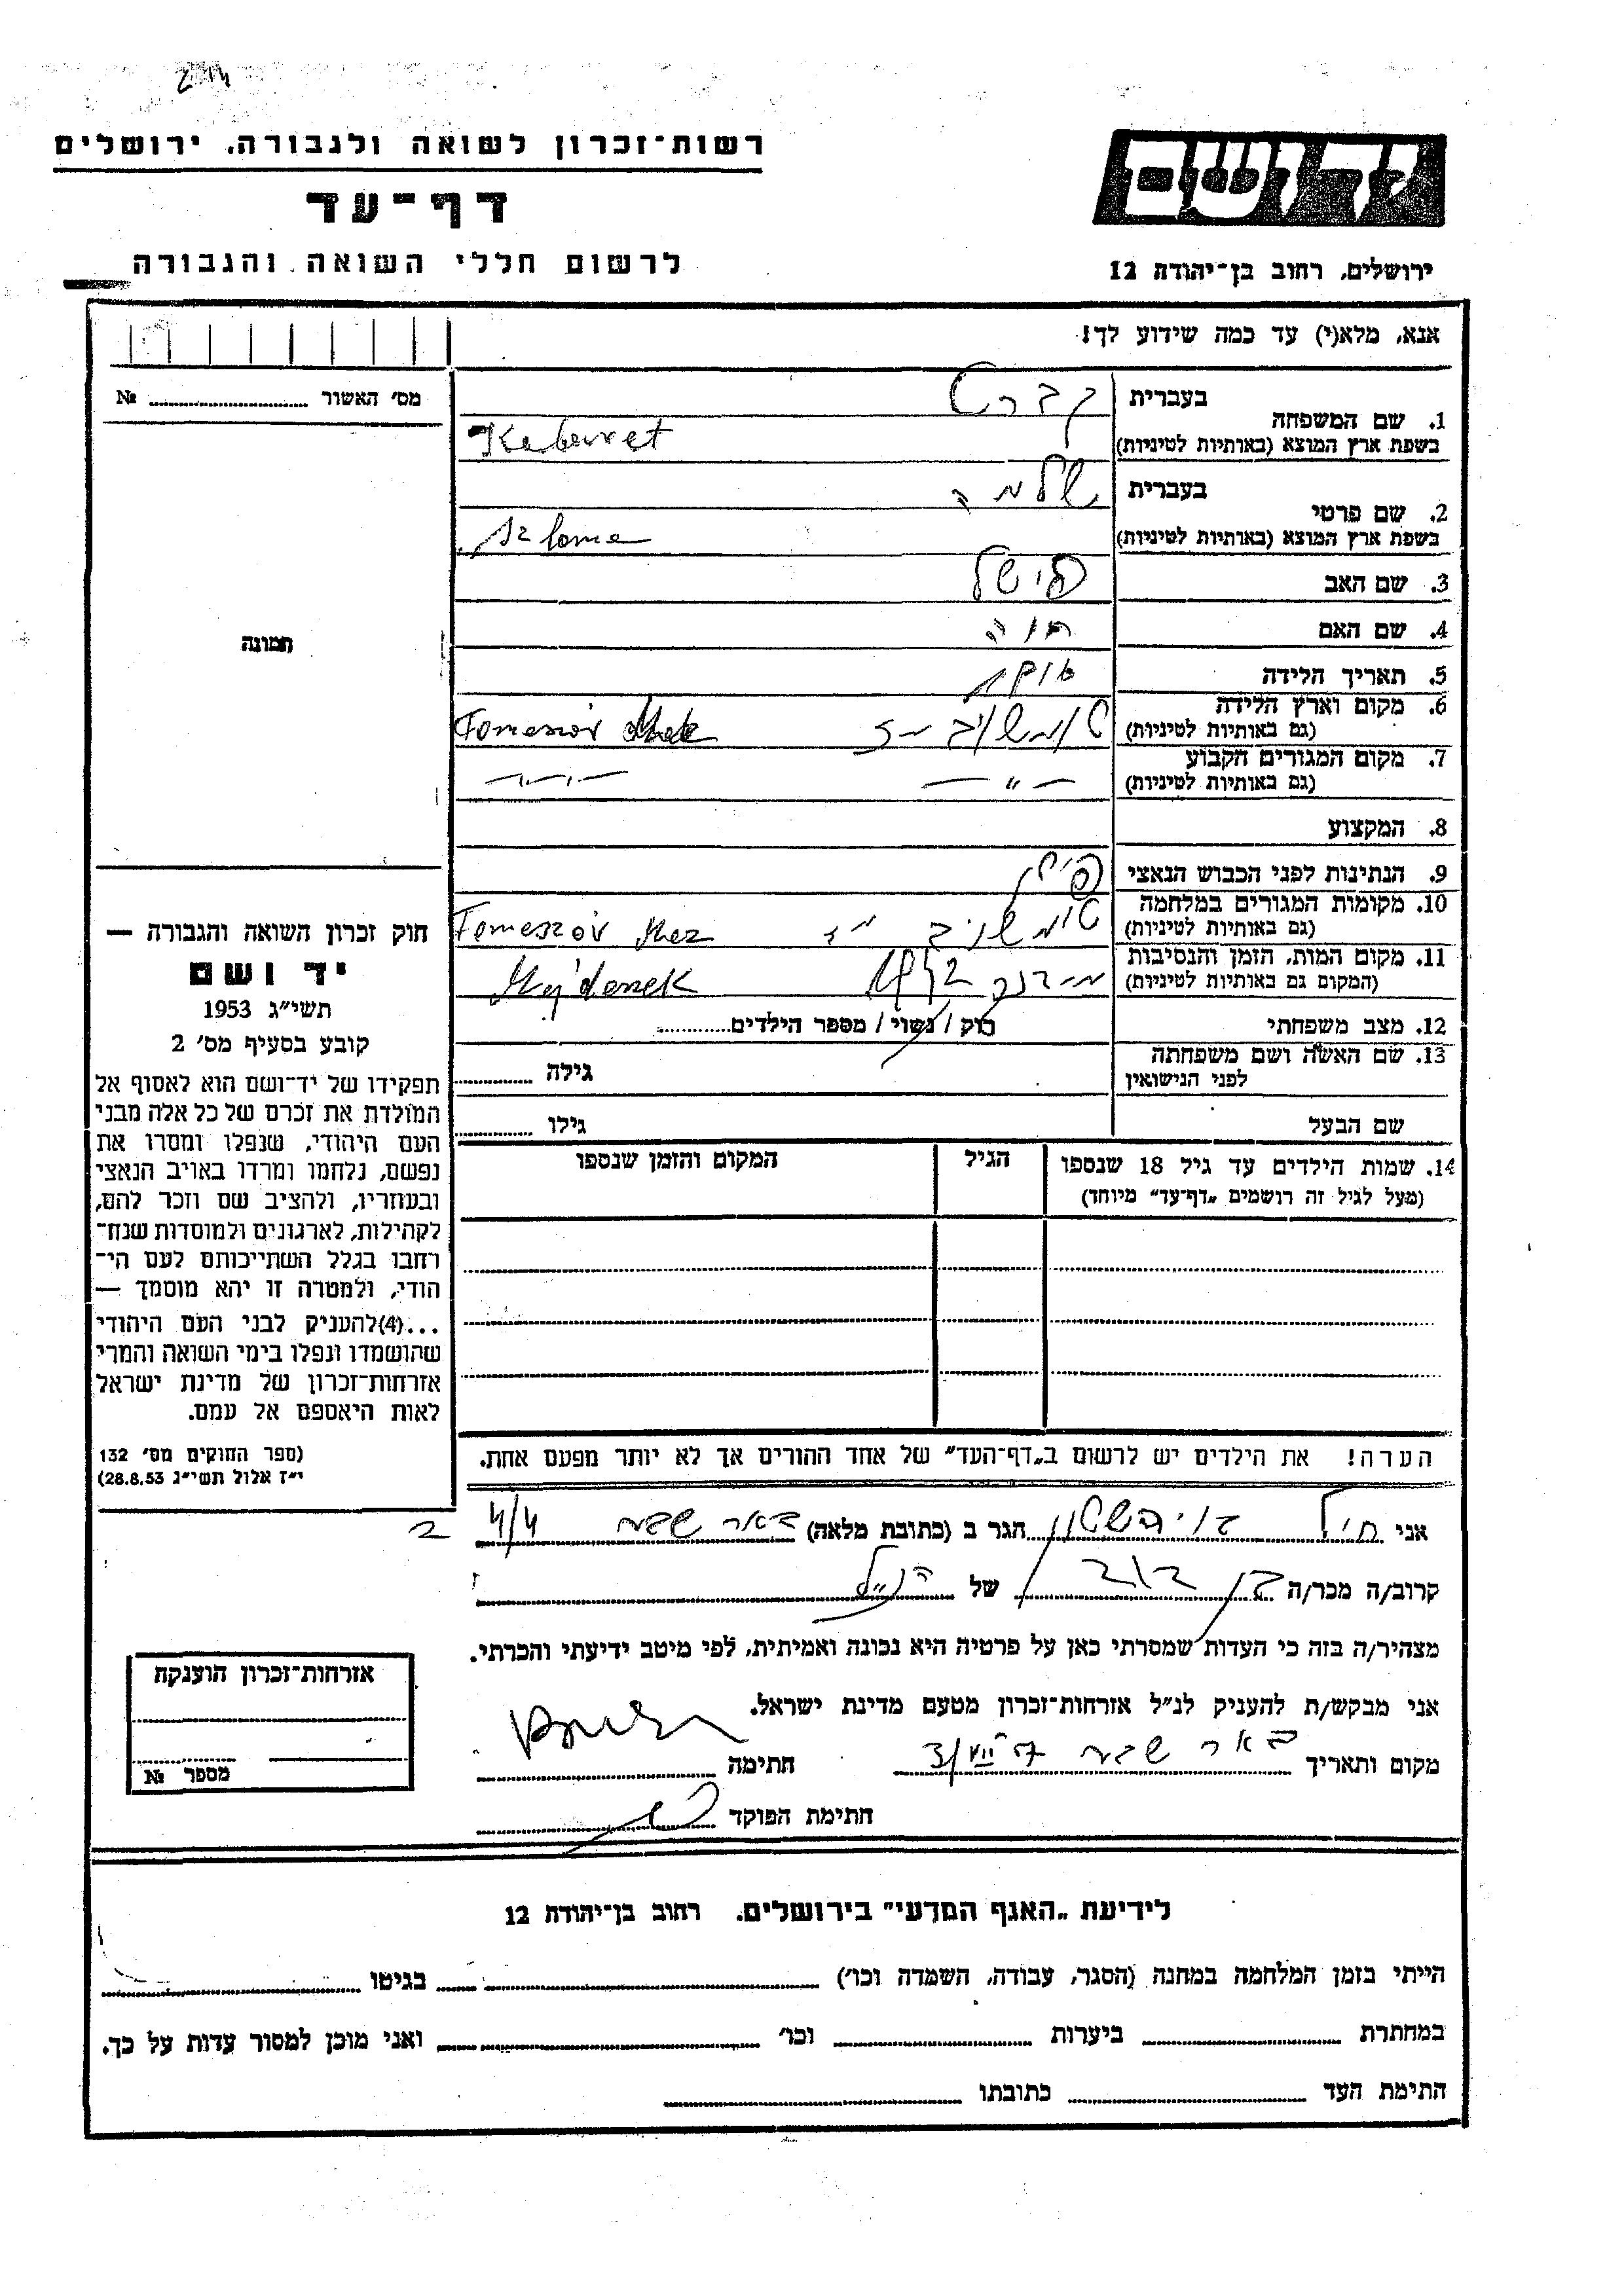 רשות־זכרון לשואה ולגבורה, ירושלים
דף־עד
לרשום חללי השואה והגבורה
ידושם
ירושלים, רחוב בן־יהודה 12
אנא, מלא(י) עד כמה שידוע לך!
מס׳ האשור № 
תמונה
חוק זכרון השואה והגבורה —
יד ושם
תשי״ג 1953
קובע בסעיף מס׳ 2
תפקידו של יד־ושם הוא לאסוף אל
המולדת את זכרם של כל אלה מבני
העם היהודי, שנפלו ומסרו את
נפשם, נלחמו ומרדו באויב הנאצי
ובעוזריו, ולהציב שם וזכר להם,
לקהילות, לארגונים ולמוסדות שנח־
רחבו בגלל השתייכותם לעם הי־
הודי, ולמטרה זו יהא מוסמך —
...(4)להעניק לבני העם היהודי
שהושמדו ונפלו בימי השואה והמרי
אזרחות־זכרון של מדינת ישראל
לאות היאספם אל עמם.
(ספר החוקים מס׳ 132
י״ז אלול תשי״ג 28.8.53)
1. שם המשפחה בעברית קברט
בשפת ארץ המוצא (באותיות לטיניות) Keberret
2. שם פרטי בעברית שלמה
בשפת ארץ המוצא (באותיות לטיניות) Szlome
3. שם האב פישל
4. שם האם חוה
5. תאריך הלידה
6. מקום וארץ הלידה
(גם באותיות לטיניות) טומשוב מז Tomeszów
7. מקום המגורים הקבוע
(גם באותיות לטיניות) — ״ — — ״ —
8. המקצוע
9. הנתינות לפני הכבוש הנאצי פולין
10. מקומות המגורים במלחמה
(גם באותיות לטיניות) טומשוב מז Tomeszów Mez
11. מקום המות, הזמן והנסיבות
(המקום גם באותיות לטיניות) מידנק Majdenek
12. מצב משפחתי רוק / נשוי / מספר הילדים
13. שם האשה ושם משפחתה
לפני הנישואין גילה
שם הבעל גילו
14. שמות הילדים עד גיל 18 שנספו הגיל המקום והזמן שנספו
(מעל לגיל זה רושמים „דף־עד״ מיוחד)
הערה! את הילדים יש לרשום ב„דף־העד״ של אחד ההורים אך לא יותר מפעם אחת.
אני הגר ב (כתובת מלאה) באר שבע 4/4
קרוב/ה מכר/ה בן דוד של הנ״ל
מצהיר/ה בזה כי העדות שמסרתי כאן על פרטיה היא נכונה ואמיתית, לפי מיטב ידיעתי והכרתי.
אני מבקש/ת להעניק לנ״ל אזרחות־זכרון מטעם מדינת ישראל.
מקום ותאריך באר שבע 3/VII 57 חתימה
חתימת הפוקד
אזרחות־זכרון הוענקה
מספר №
לידיעת „האגף המדעי״ בירושלים, רחוב בן־יהודה 12
הייתי בזמן המלחמה במחנה (הסגר, עבודה, השמדה וכו׳) בגיטו
במחתרת ביערות וכו׳ ואני מוכן למסור עדות על כך.
התימת העד כתובתו